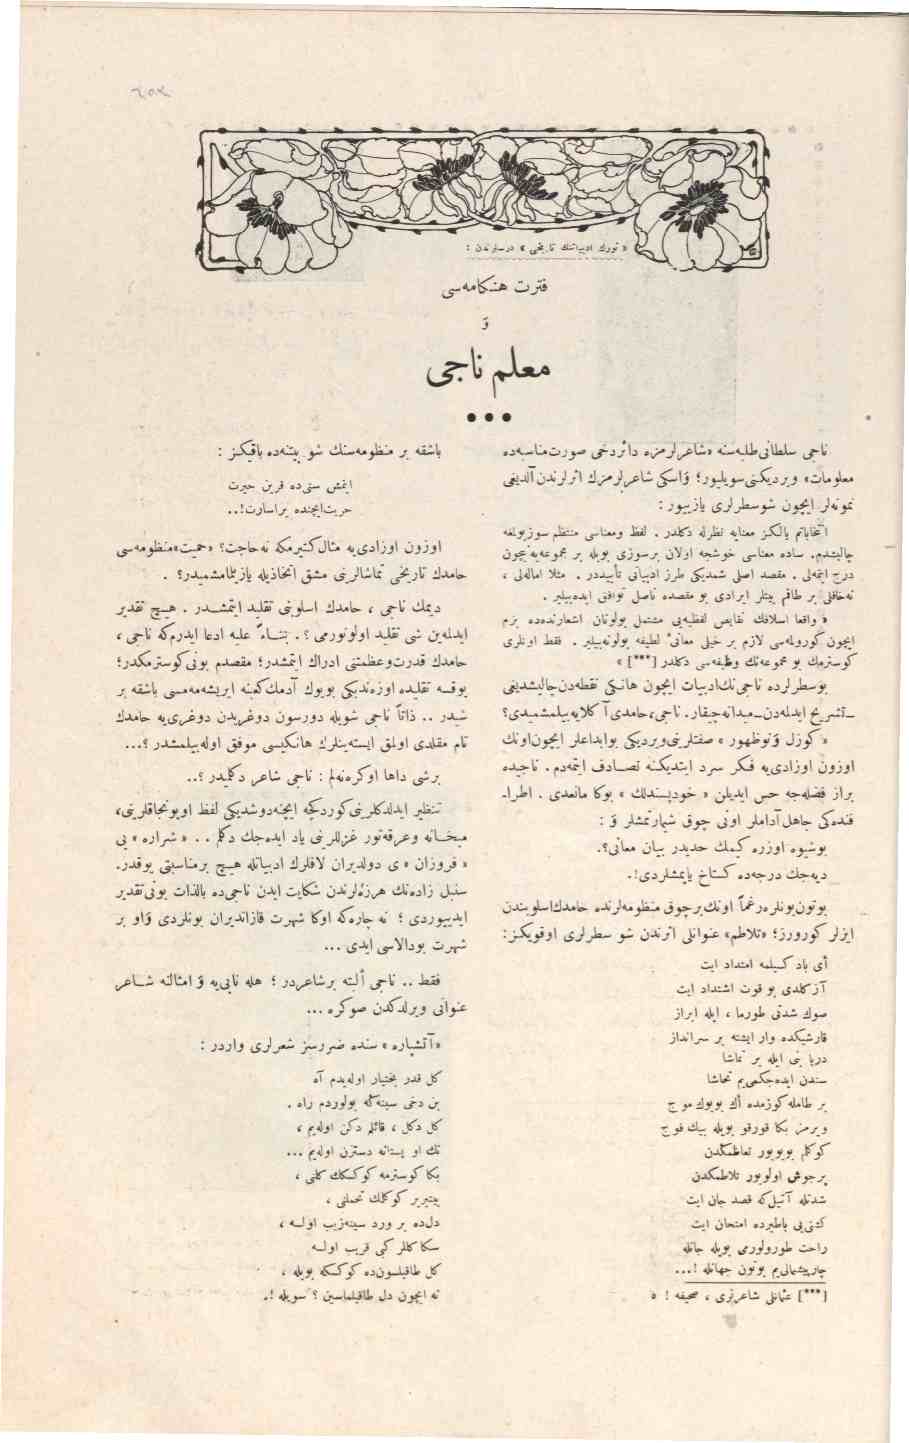 ٢٥٤
« تورك ادبیاتنك تاریخی » درسلرندن :
فترت هنكامه‌سی
ؤ
معلم ناجی
•••
ناجی سلطانی طلبه‌سنه «شاعرلرمزه دائر دخی صورت مناسبه‌ده
معلومات» ویردیكنی سویلیور؛ ؤ اسكی شاعرلرمزك اثرلرندن آلدیغی
نمونه‌لر ایچون شو سطرلری یازییور :
انتخاباتم یالكز معنایه نظرله دكلدر . لفظ ومعناسی منتظم سوز بولمغه
چالیشدم. ساده معناسی خوشجه اولان برسوزی بویله بر مجموعه‌یه نیچون
درج ایتمه‌لی . مقصد اصلی شمدیكی طرز ادبیاتی تأییددر . مثلا اماله‌لی ،
نه‌خافلی بر طاقم بیتلر ایرادی بو مقصده ناصل توافق ایده‌بیلیر .
« واقعا اسلافك نقایص لفظیه‌یی مشتمل بولونان اشعارنده‌ده بزم
ایچون كورولمه‌سی لازم بر خیلی معانیٔ لطیفه بولونه‌بیلیر . فقط اونلری
كوسترمك بو مجموعه‌نك وظیفه‌سی دكلدر [***] »
بوسطرلرده ناجی‌نك ادبیات ایچون هانكی نقطه‌دن چالیشدیغی
ـ تشریح ایدلمه‌دن ـ میدانه چیقار. ناجی، حامدی آكلایه‌بیلمشمیدی؟
« كوزل ؤ نوظهور » صفتلرینی ویردیكی بوابداعلر ایچون اونك
اوزون اوزادی‌یه فكر سرد ایتدیكنه تصادف ایتمه‌دم . ناجیده
براز فضله‌جه حس ایدیلن « خودپسندلك » بوكا مانعدی . اطرا-
فنده‌كی جاهل آداملر اونی چوق شیمارتمشلر ؤ :
بوشیوه اوزره كیمك حدیدر بیان معانی؟.
دیه‌جك درجه‌ده كستاخ یاپمشلردی!.
بوتون بونلره رغماً اونك برچوق منظومه‌لرنده حامدك اسلوبندن
ایزلر كورورز؛ «تلاطم» عنوانلی اثرندن شو سطرلری اوقویكز:
أی باد كسیلمه امتداد ایت
آز كلدی بو قوت اشتداد ایت
صوك شدتی طورما ، ایله ابراز
قارشیكده وار ایشته بر سرانداز
دریا بنی ایله بر تماشا
سندن ایده‌جكمی‌یم تحاشا
بر طامله كوزمده أك بویوك موج
ویرمز بكا قورقو بویله بیك فوج
كوكلم بویویور تعاظمكدن
پرجوش اولویور تلاطمكدن
شدتله آتیل كه قصد جان ایت
كشتی‌یی باطیر ده امتحان ایت
راحت طورولورمی بویله جانله
چارپیشمالی‌یم بوتون جهانله !...
[***] عثمانلی شاعرلری ، صحیفه ! ٥
باشقه بر منظومه‌سنك شو بیتنه‌ده باقیكز :
ایتمش سنی‌ده قرین حیرت
حریت ایچنده بر اسارت!..
اوزون اوزادی‌یه مثال كتیرمكه نه حاجت؟ «حمیت» منظومه‌سی
حامدك تاریخی تماشالرینی مشق اتخاذیله یازیلمامشمیدر؟ .
دیمك ناجی ، حامدك اسلوبنی تقلید ایتمشدر . هیچ تقدیر
ایدلمه‌ین شی تقلید اولونورمی ؟ . بناءً علیه ادعا ایدرم كه ناجی ،
حامدك قدرت وعظمتنی ادراك ایتمشدر؛ مقصدم بونی كوسترمكدر؛
یوقسه تقلیده اوزه‌ندیكی بویوك آدمك كعبنه ایریشه‌مه‌مسی باشقه بر
شیدر .. ذاتاً ناجی شویله دورسون دوغریدن دوغری‌یه حامدك
تام مقلدی اولمق ایسته‌ینلرك هانكیسی موفق اوله‌بیلمشدر ؟...
برشی داها اوكره‌نه‌لم : ناجی شاعر دكلمیدر ؟..
تنظیر ایدلدكلرینی كوردكجه ایچنه‌دوشدیكی لفظ اویونجاقلرینی،
میخانه وعرقه‌تور غزللرینی یاد ایده‌جك دكلم . . « شراره » یی
« فروزان » ی دولدیران لافلرك ادبیاتله هیچ بر مناسبتی یوقدر.
سنبل زاده‌نك هرزه‌لرندن شكایت ایدن ناجی‌ده بالذات بونی تقدیر
ایدییوردی ؛ نه چاره كه اوكا شهرت قازاندیران بونلردی ؤ او بر
شهرت بودالاسی ایدی ...
فقط .. ناجی ألبته بر شاعردر ؛ هله نابی‌یه ؤ امثالنه شاعر
عنوانی ویرلدكدن صوكره ...
«آتشپاره» سنده ضررسز شعرلری واردر :
كل قدر بختیار اوله‌یدم آه
بن دخی سینه‌كه بولوردم راه .
كل دكل ، قائلم دكن اوله‌یم ،
تك او پستانه دسترن اوله‌یم ...
بكا كوسترمه كوكسكك كلنی ،
ییتیریر كوكلك تحملنی ،
دل‌ده بر ورد سینه‌زیب اولسه ،
سكا كللر كبی قریب اولسه
كل طاقیلسون‌ده كوكسكه بویله ،
نه ایچون دل طاقیلماسین ؟ سویله !.